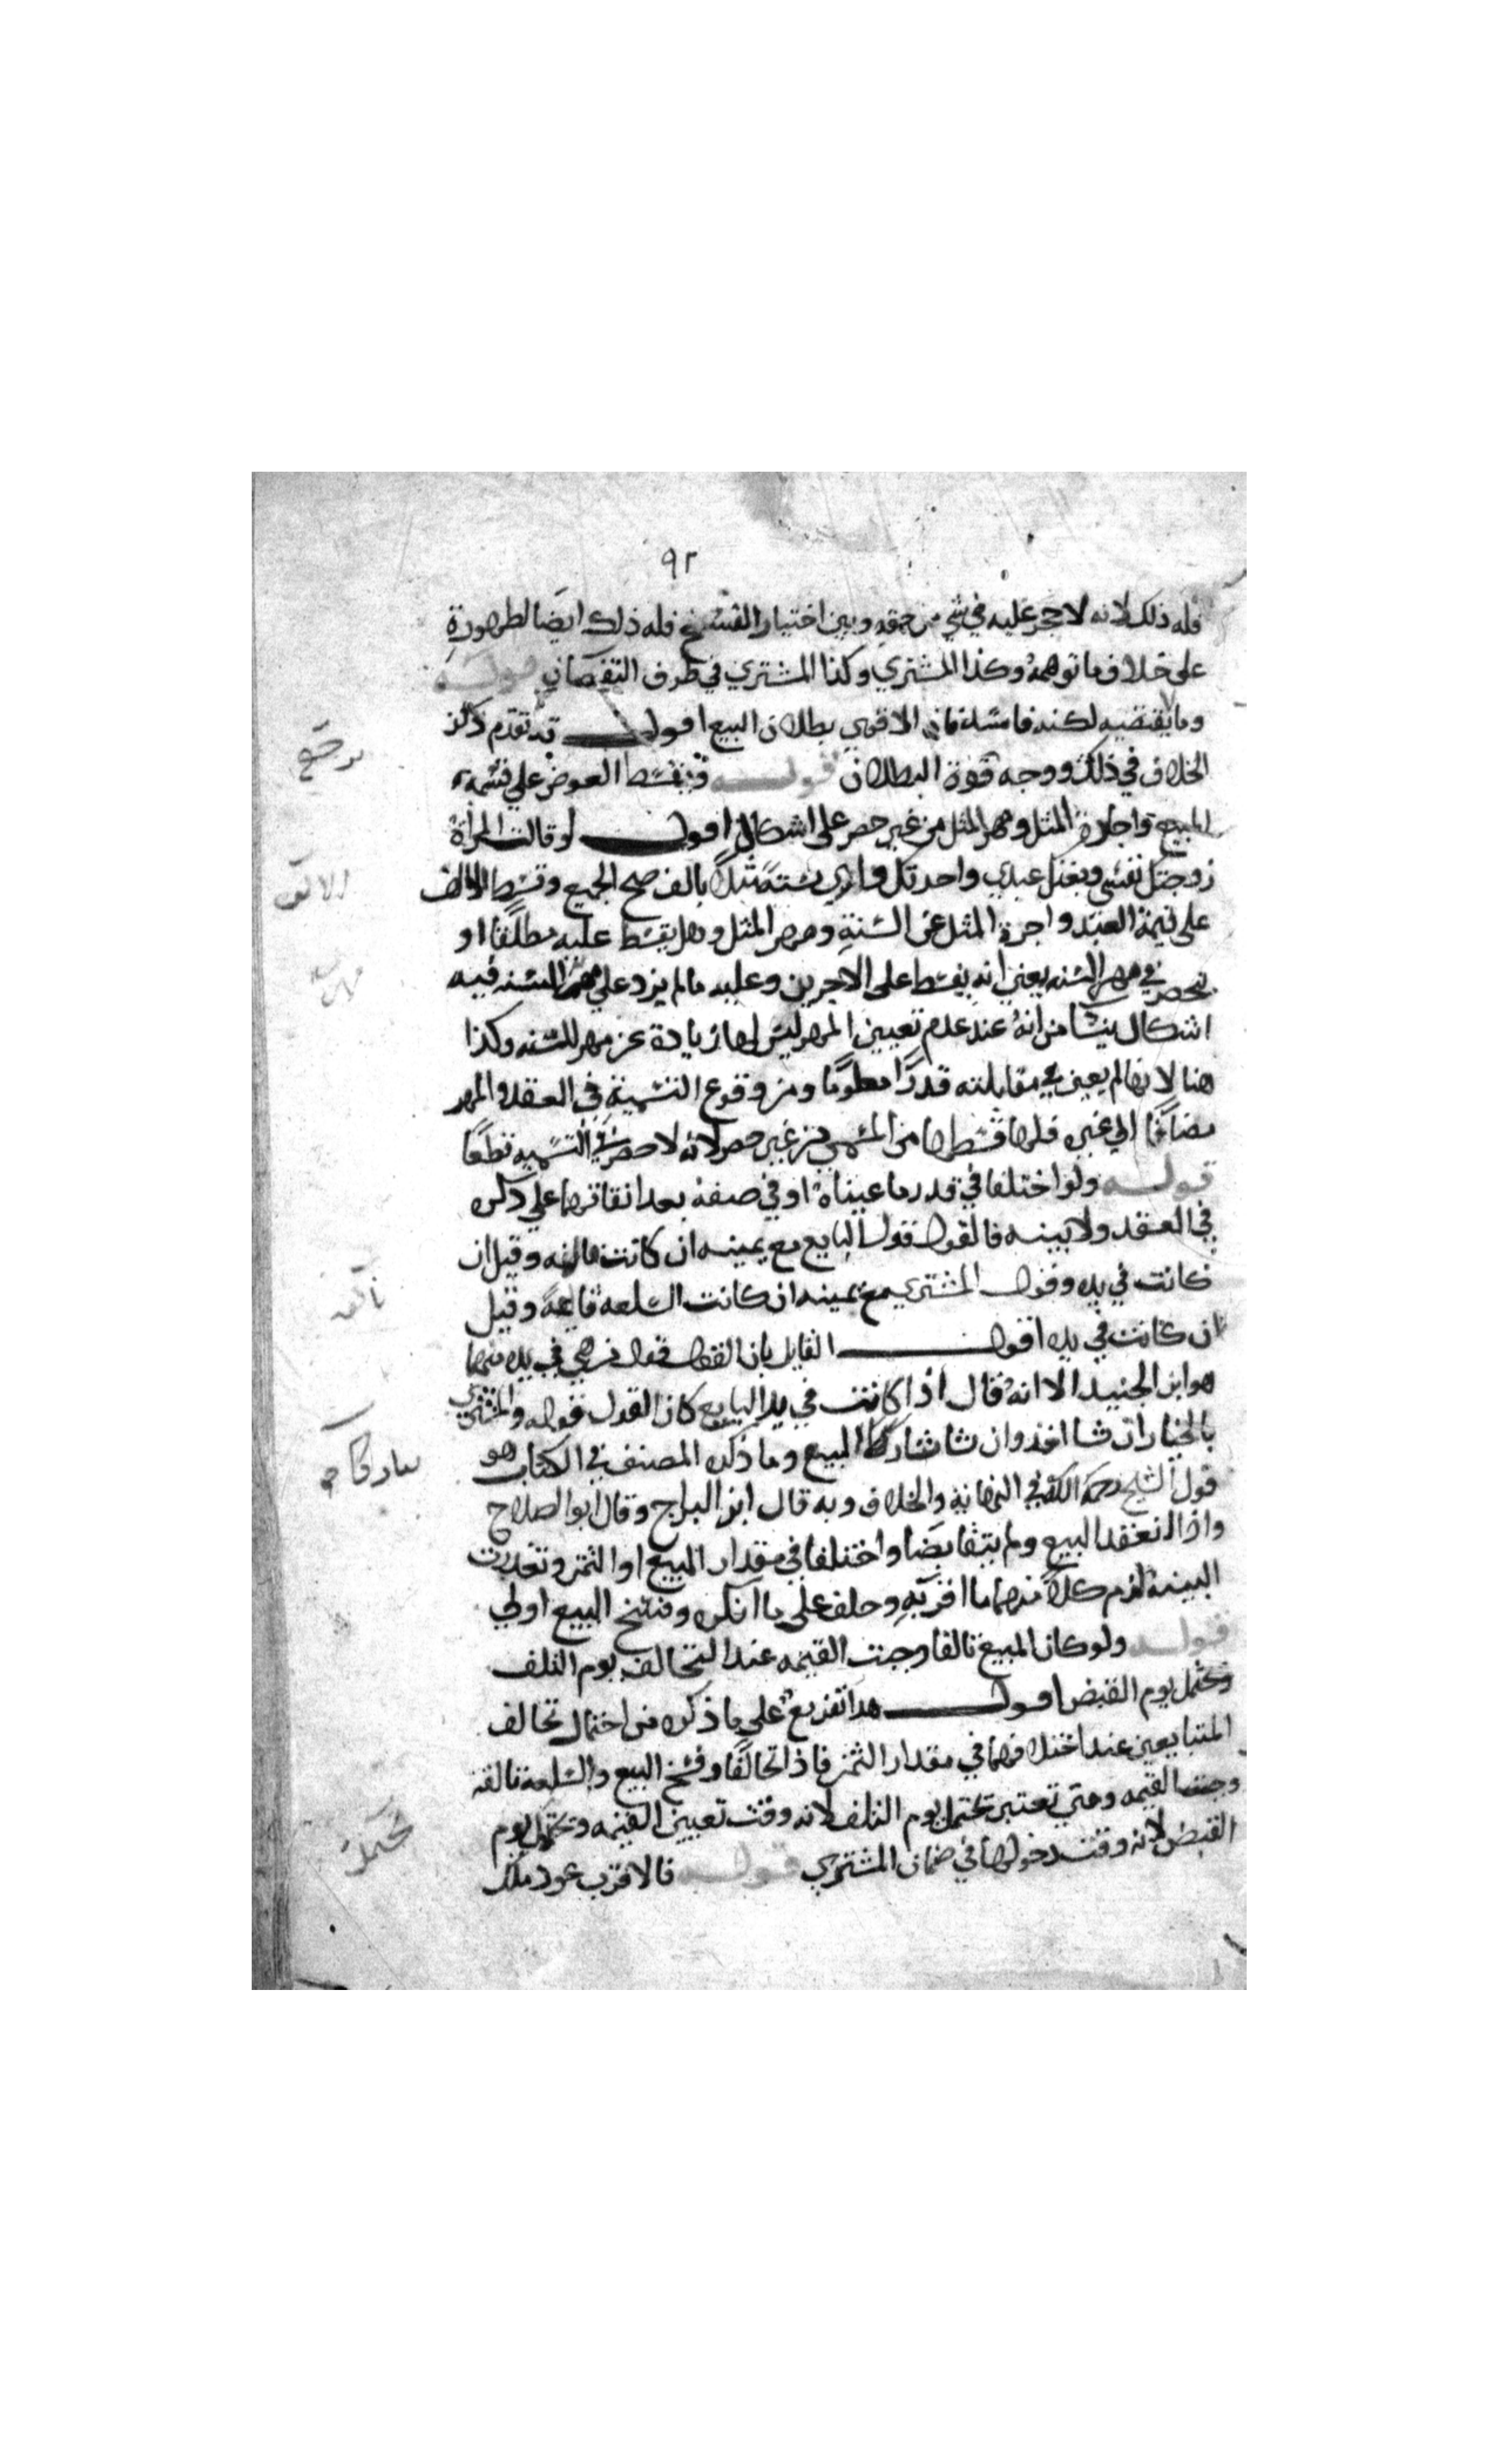 ٩٢
فله ذلك لانه لا حجر عليه في شي من حقه وبين اختيار الفسخ فله ذلك ايضا لظهوره
على خلاف ما توهمه وكذا المشتري وكذا المشتري في طرف النقصان قوله
وما يقتضيه لكنه فالاقوى بطلان البيع اقول قد تقدم ذكر
الخلاف في ذلك ووجه قوة البطلان قوله ويقسط العوض على قيمة
المبيع واجرة المثل ومهر المثل من غير حصر على اشكال اقول لو قالت المرأة
زوجتك نفسي وبعتك عبدي واجرتك داري سنة مثلا بالف صح الجميع وقسط الالف
على قيمة العبد واجرة المثل عن السنة ومهر المثل وهل يقسط عليه مطلقا او
ينحصر في مهر السنه يعني انه يقسط على الاجرين وعليه ما لم يزد على مهر السنه فيه
اشكال ينشأ من انه عند عدم تعيين المهر ليس لها زيادة عن مهر السنه وكذا
هنا لانها لم يعين في مقابلته قدرا معلوما ومن وقوع التسمية في العقد والمهر
مضافا الى غيره فلها قسطها من المسمى من غير حصر لانه لا حصر في التسميه قطعا
قوله ولو اختلفا في قدر ما عيناه او في صفة بعد اتفاقهما على ذكره
في العقد ولا بينه فالقول قول البايع مع يمينه ان كانت تالفه وقيل ان
كانت في يده وقول المشتري مع يمينه ان كانت السلعه قايمة وقيل
ان كانت في يده اقول القايل بان القول قول من هي في يده منهما
هو ابن الجنيد الا انه قال اذا كانت في يد البايع كان القول قوله والمشتري
بالخيار ان شا اخذ وان شا تارك البيع وما ذكره المصنف في الكتاب هو
قول الشيخ رحمه الله في النهاية والخلاف وبه قال ابن البراج وقال ابو الصلاح
واذا انعقد البيع ولم يتقابضا واختلفا في مقدار المبيع او الثمن وتعذرت
البينة لزم كلا منهما ما اقر به وحلف على ما انكره وفسخ البيع اولى
قوله ولو كان المبيع تالفا وجبت القيمه عند التحالف يوم التلف
ويحتمل يوم القبض اقول هذا تفريع على ما ذكره من احتمال تحالف
المتبايعين عند اختلافهما في مقدار الثمن فاذا تحالفا وفسخ البيع والسلعة تالفه
وجبت القيمه ومتى تعتبر يحتمل يوم التلف لانه وقت تعيين القيمه ويحتمل يوم
القبض لانه وقت دخولها في ضمان المشتري قوله فالاقرب عود ملك